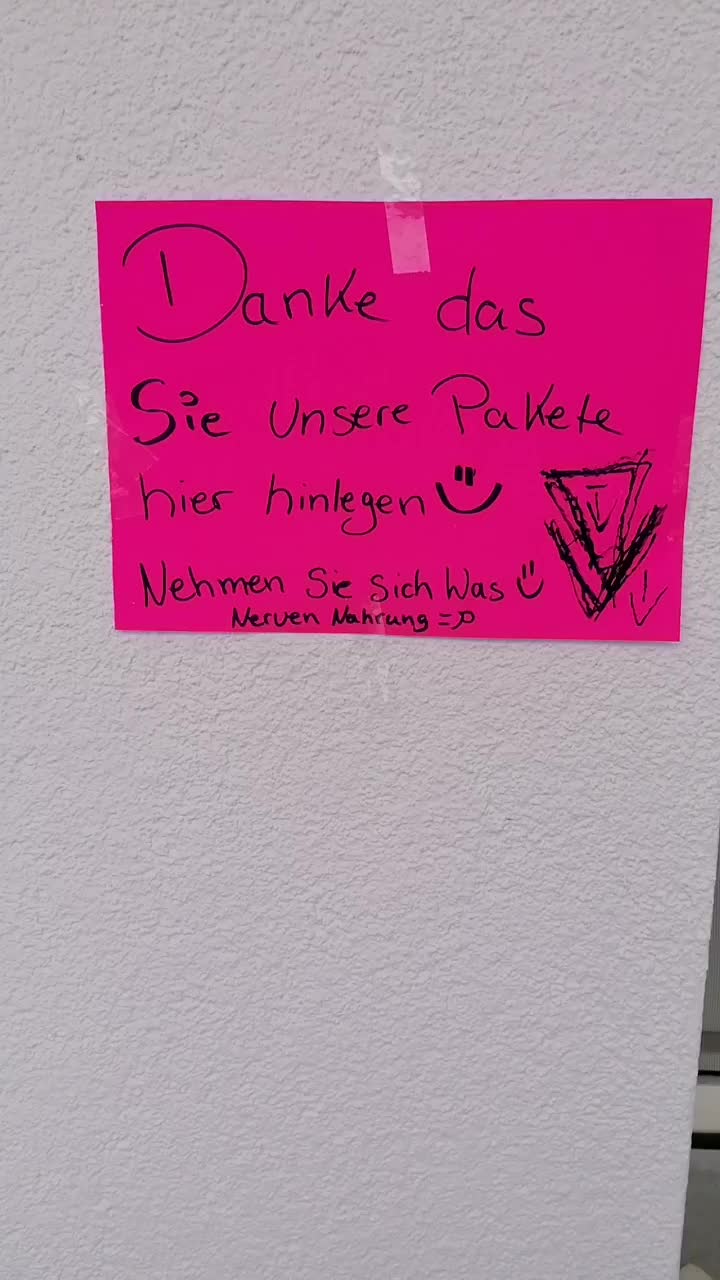 Danke das
Sie unsere Pakete
hier hinlegen
Nehmen Sie sich Was
Nerven Nahrung =;o